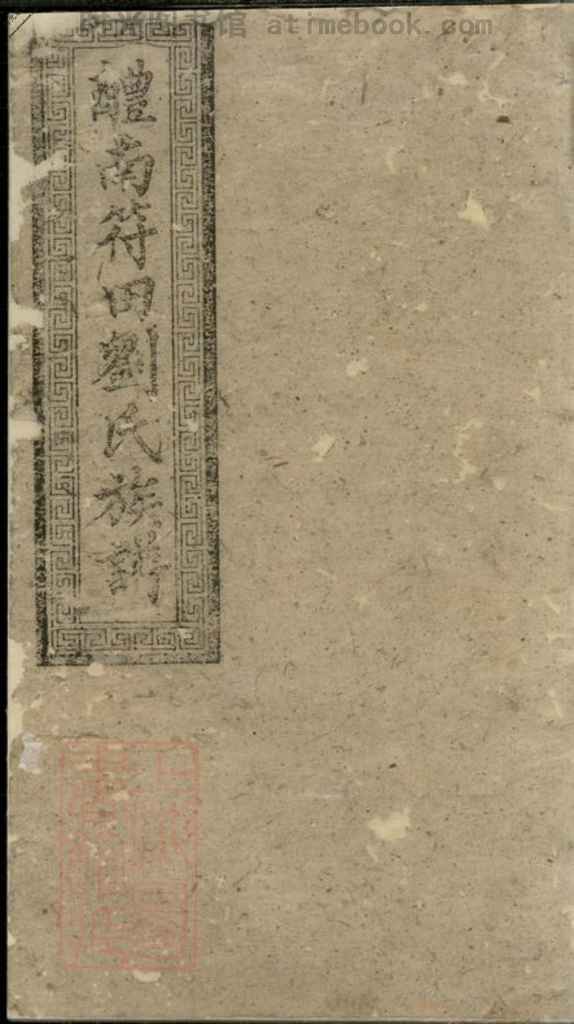 时光图书馆 atimebook.com
醴南符田劉氏族譜